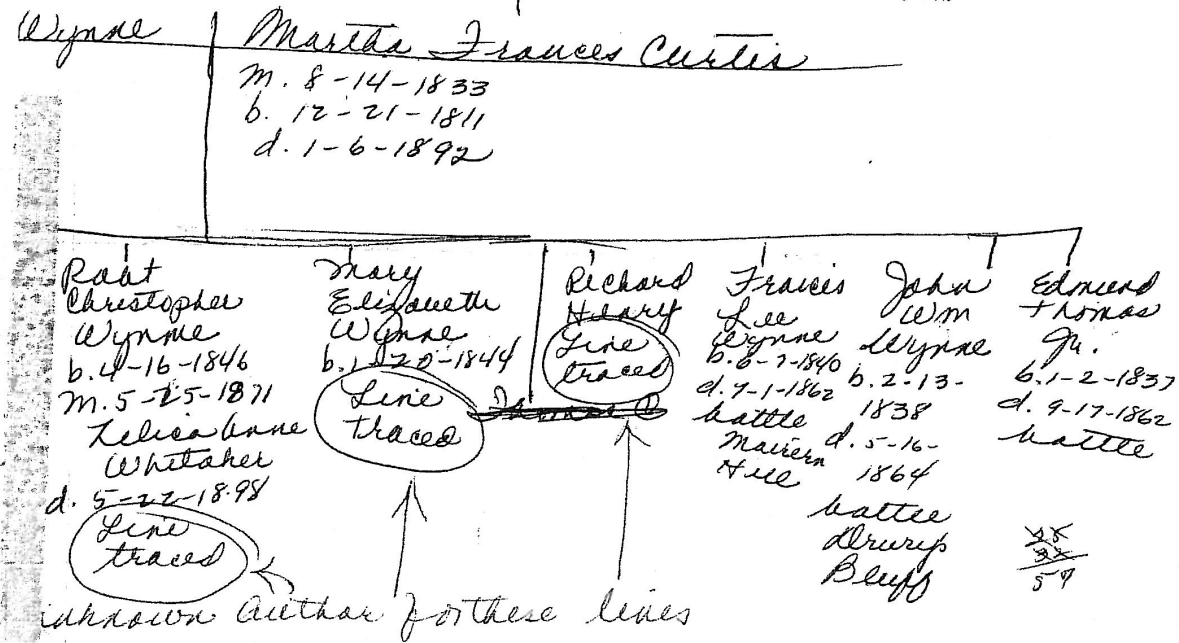 Wynne
Martha Frances Curtis
m. 8-14-1833
b. 12-21-1811
d. 1-6-1892
Robt
Christopher
Wynne
b. 4-16-1846
m. 5-25-1871
Anne
Whitaker
d. 5-22-1898
Line
traced
Mary
Elizabeth
Wynne
b. 1-20-1844
Line
traced
Richard
Henry
Line
traced
Francis
Lee
Wynne
b. 6-7-1840
d. 7-1-1862
battle
Hill
John
Wm
Wynne
b. 2-13-
1838
d. 5-16-
1864
battle
Drurys
Bluff
Edmund
Thomas
Jr.
b. 1-2-1837
d. 9-17-1862
battle
unknown author for these lines